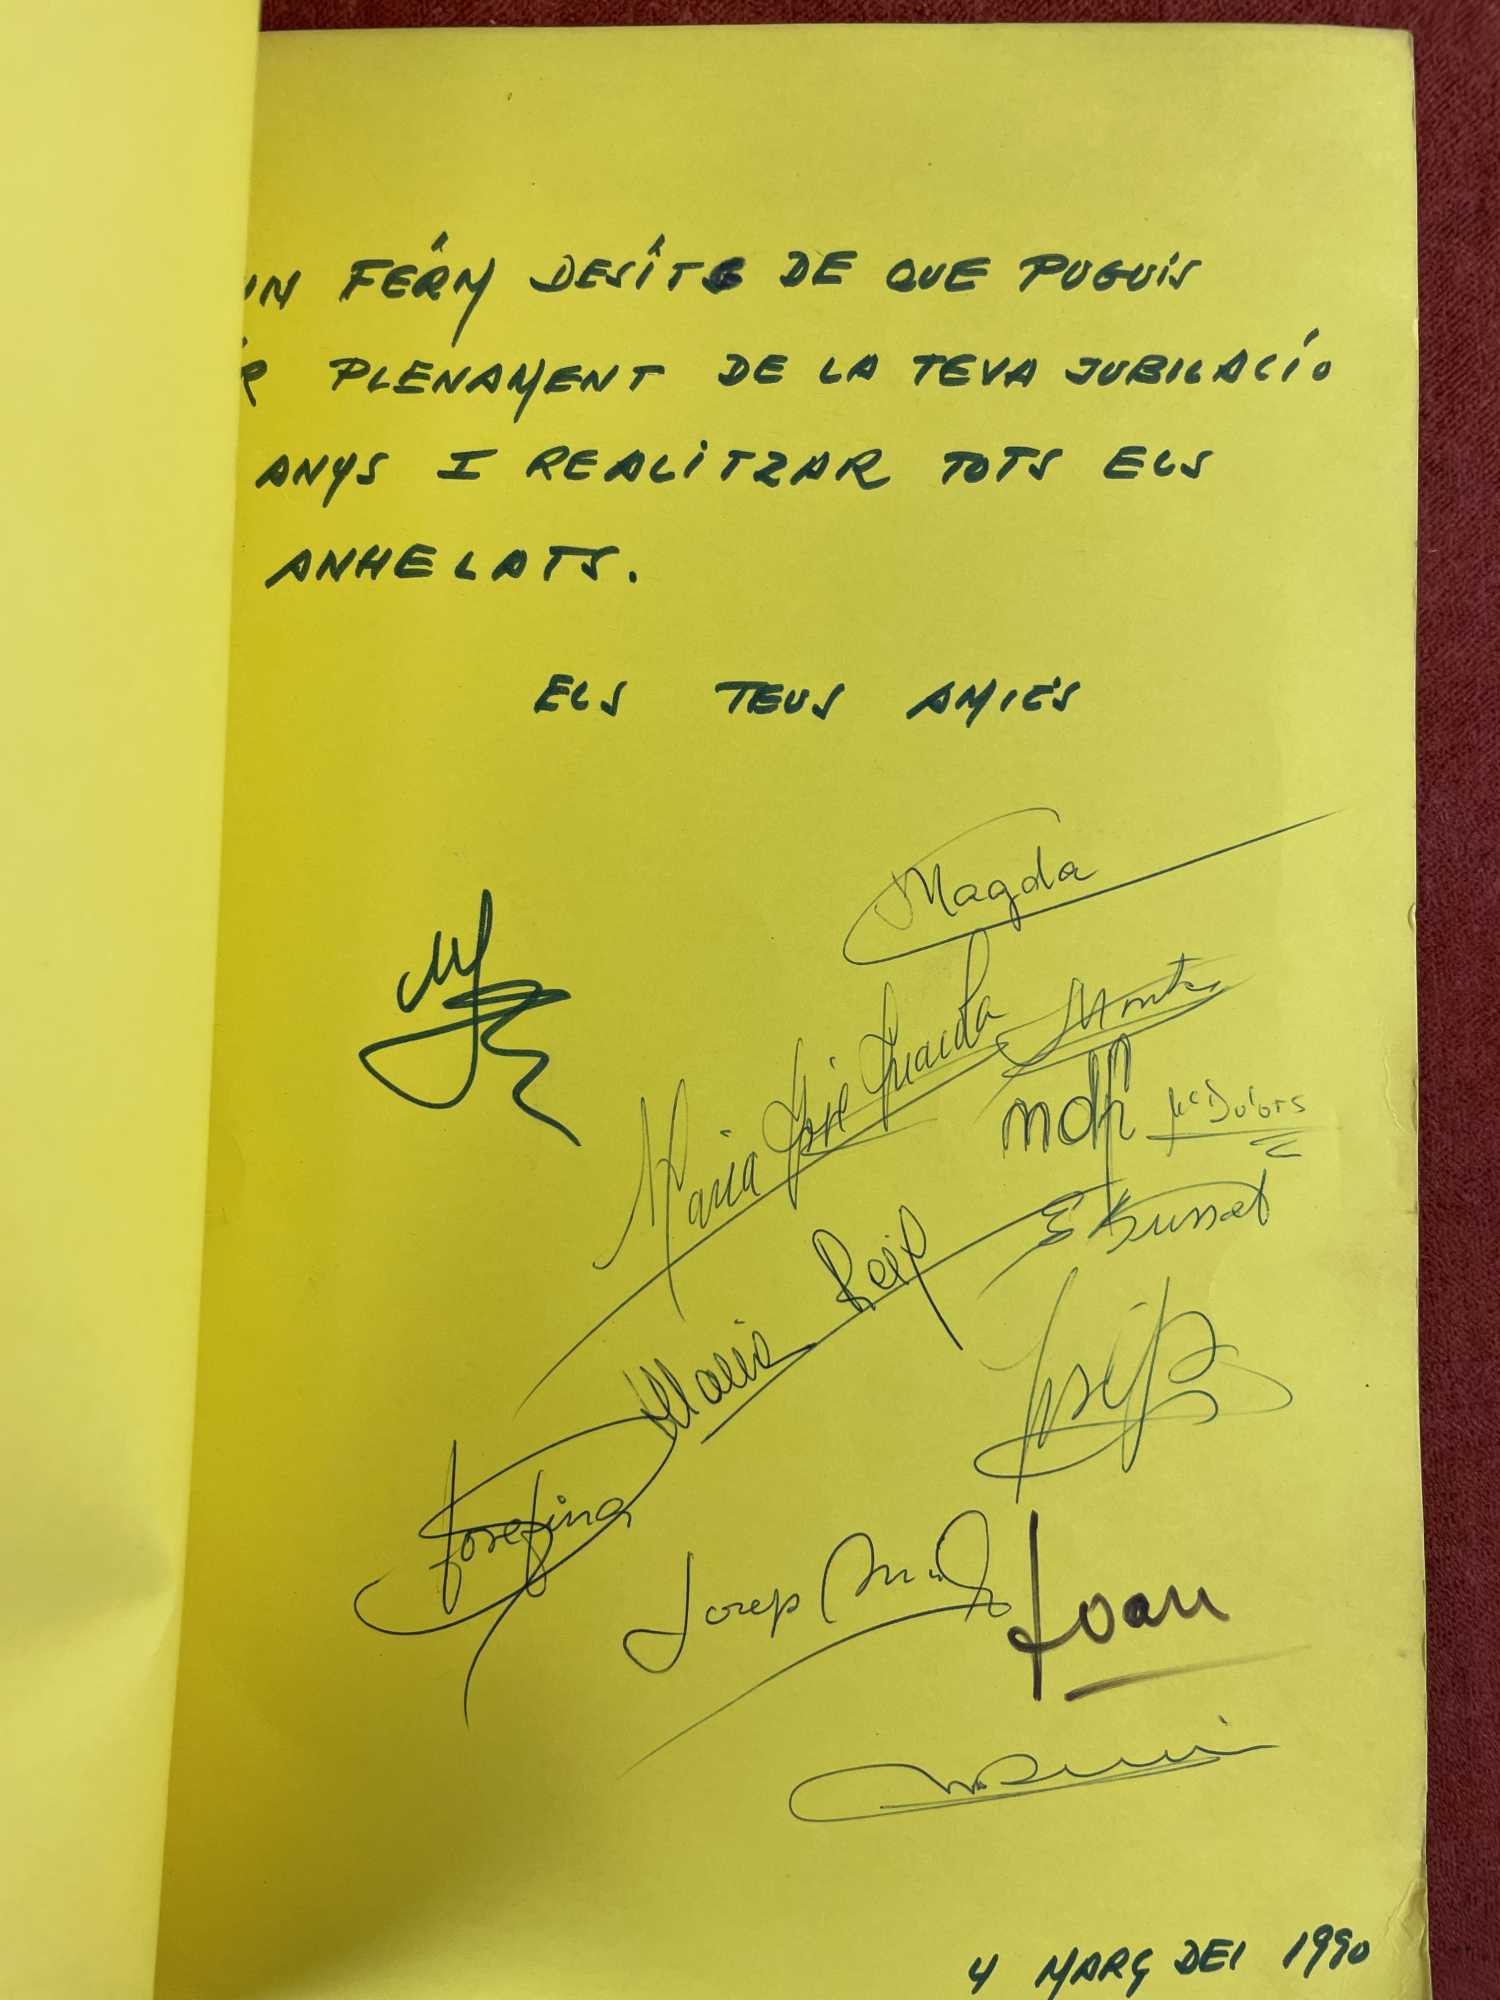 UN FERM DESITG DE QUE PUGUIS
R PLENAMENT DE LA TEVA JUBILACIÓ
ANYS I REALITZAR TOTS ELS
ANHELATS.
ELS TEUS AMICS
Magda
Maria José Guarda
Montse
Mª Dolors
Maria Reig
Josep
Josefina
Josep
Joan
4 MARÇ DEL 1990